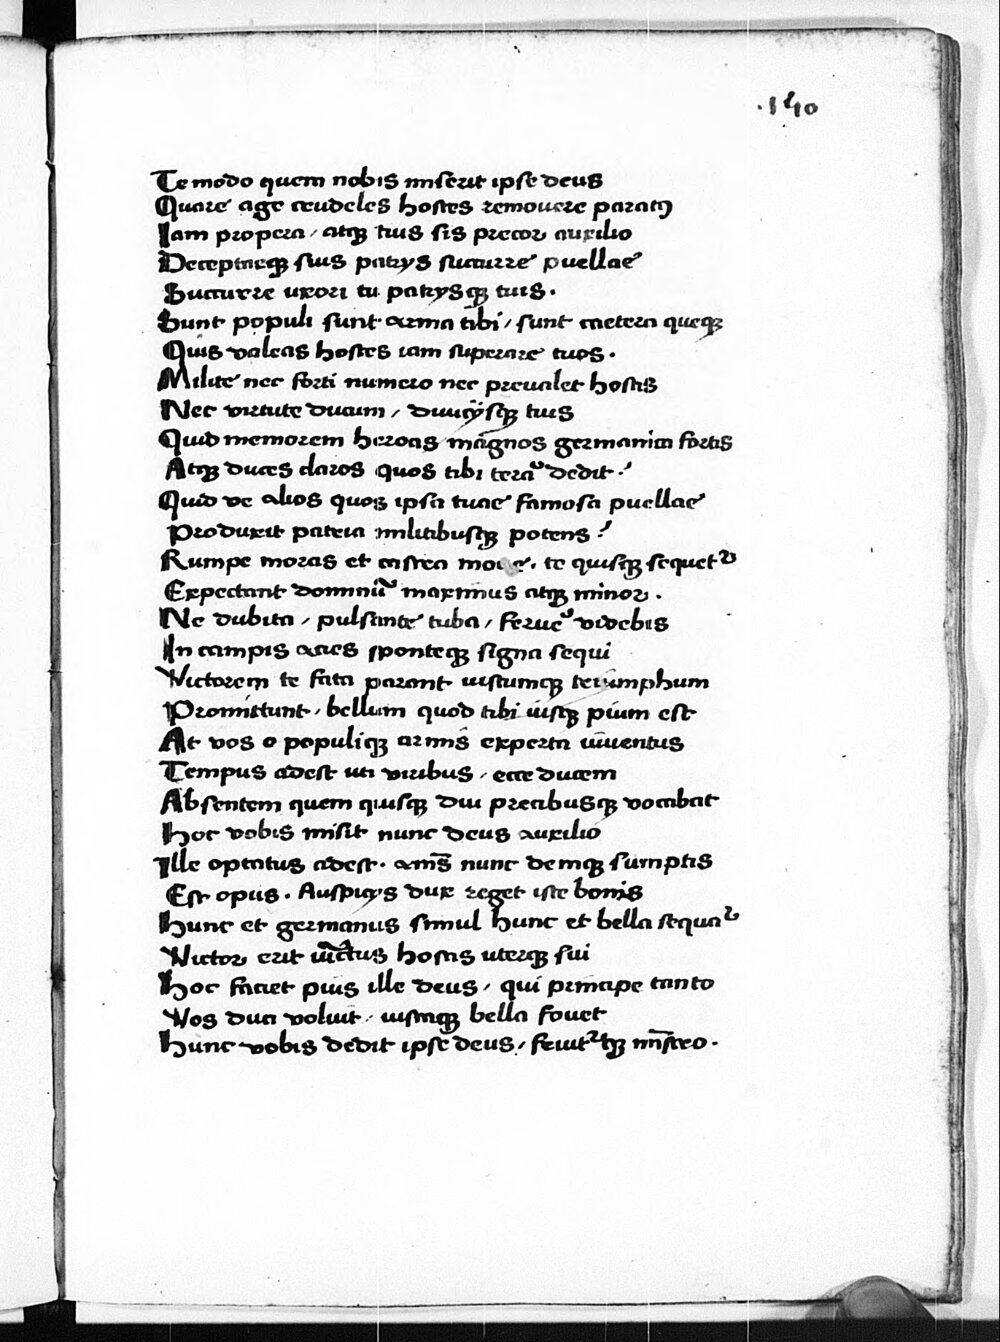 .140
Te modo quem nobis miserit ipse deus
Quare age crudeles hostes remouere paratꝰ
Iam propera / atqꝫ tuis sis precor auxilio
Decepteqꝫ suis patrÿs succurre puellae
Succurre uxori tu patrÿsqꝫ tuis.
Sunt populi sunt arma tibi / sunt caetera queqꝫ
Quis valeas hostes iam superare tuos.
Milite nec forti numero nec preualet hostis
Nec virtute ducum / diuicÿsqꝫ tuis
Quid memorem heroas magnos germanica fortis
Atqꝫ duces claros quos tibi terra dedit?
Quid ve alios quoqꝫ ipsa tuae famosa puellae
Produxit patria militibusqꝫ potens?
Rumpe moras et castra moue. te quisqꝫ sequet᷑
Expectant dominū maximus atqꝫ minor.
Ne dubita / pulsante tuba / videbis
In campis acies sponteqꝫ signa sequi
Victorem te fata parant iustumqꝫ triumphum
Promittunt / bellum quod tibi iusqꝫ pium est
At vos o populiqꝫ armis experta iuuentus
Tempus adest uti viribus / ecce ducem
Absentem quem quisqꝫ diu precibusqꝫ vocabat
Hoc vobis misit nunc deus auxilio
Ille optatus adest. armis nunc demqꝫ sumptis
Est opus. Auspicÿs dux reget iste bonis
Hunc et germanus simul hunc et bella sequat᷑
Victor erit uictus hostis uterqꝫ sui
Hoc faciet pius ille deus / qui principe tanto
Vos duci voluit / iustaqꝫ bella fouet
Hunc vobis dedit ipse deus /